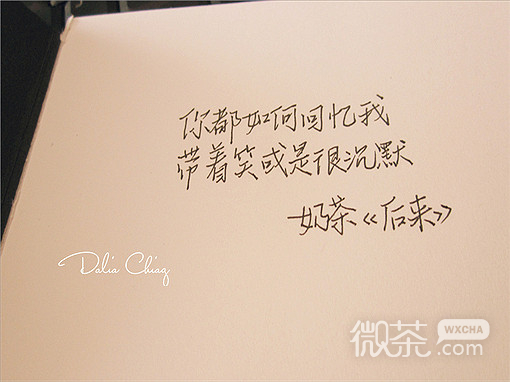 你都如何回忆我
带着笑或是很沉默
—奶茶《后来》
Dalia Chiaq
微茶
WXCHA
.com